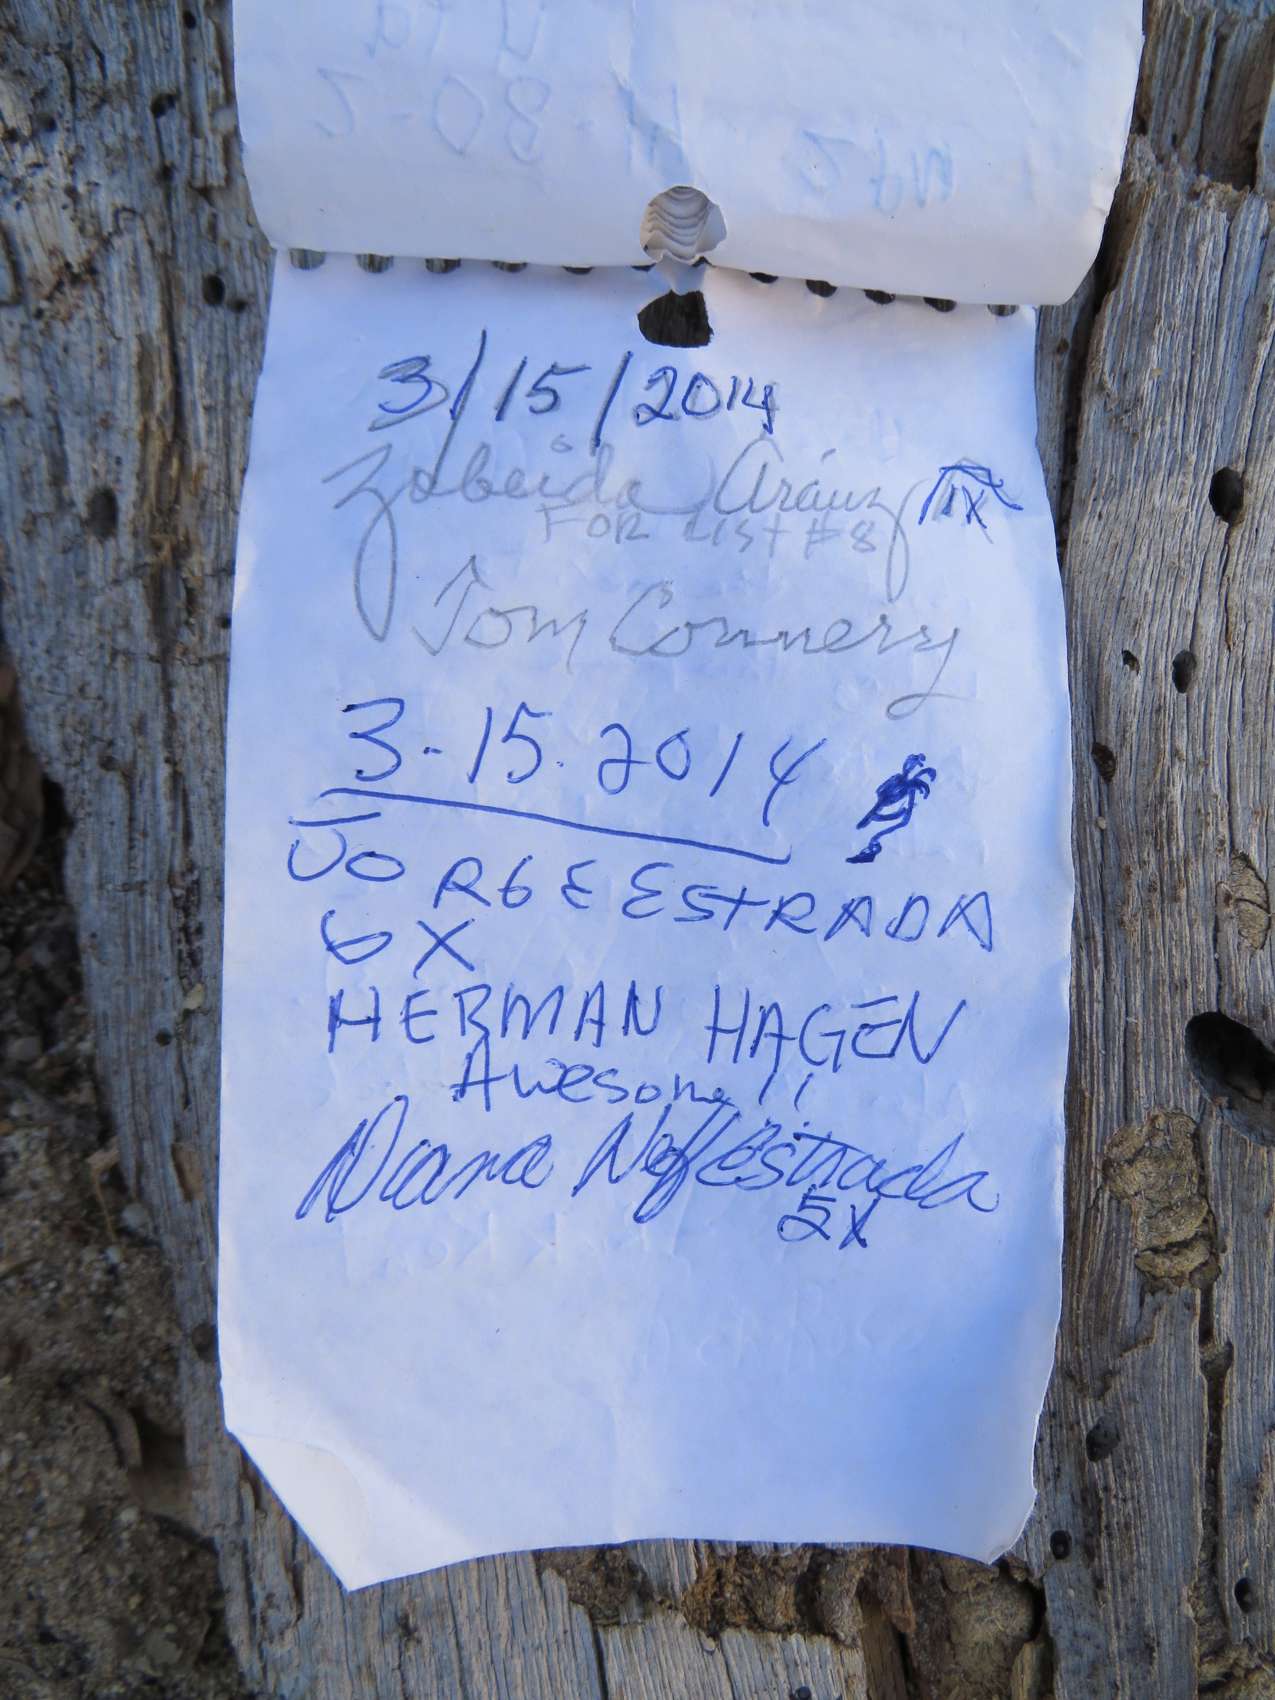 3/15/2014
Zobeida Aráuz 1X
FOR LIST #8
Tom Connery
3-15.2014
JORGE ESTRADA
6X
HERMAN HAGEN
Awesome!!
Diana Neff Estrada
5X